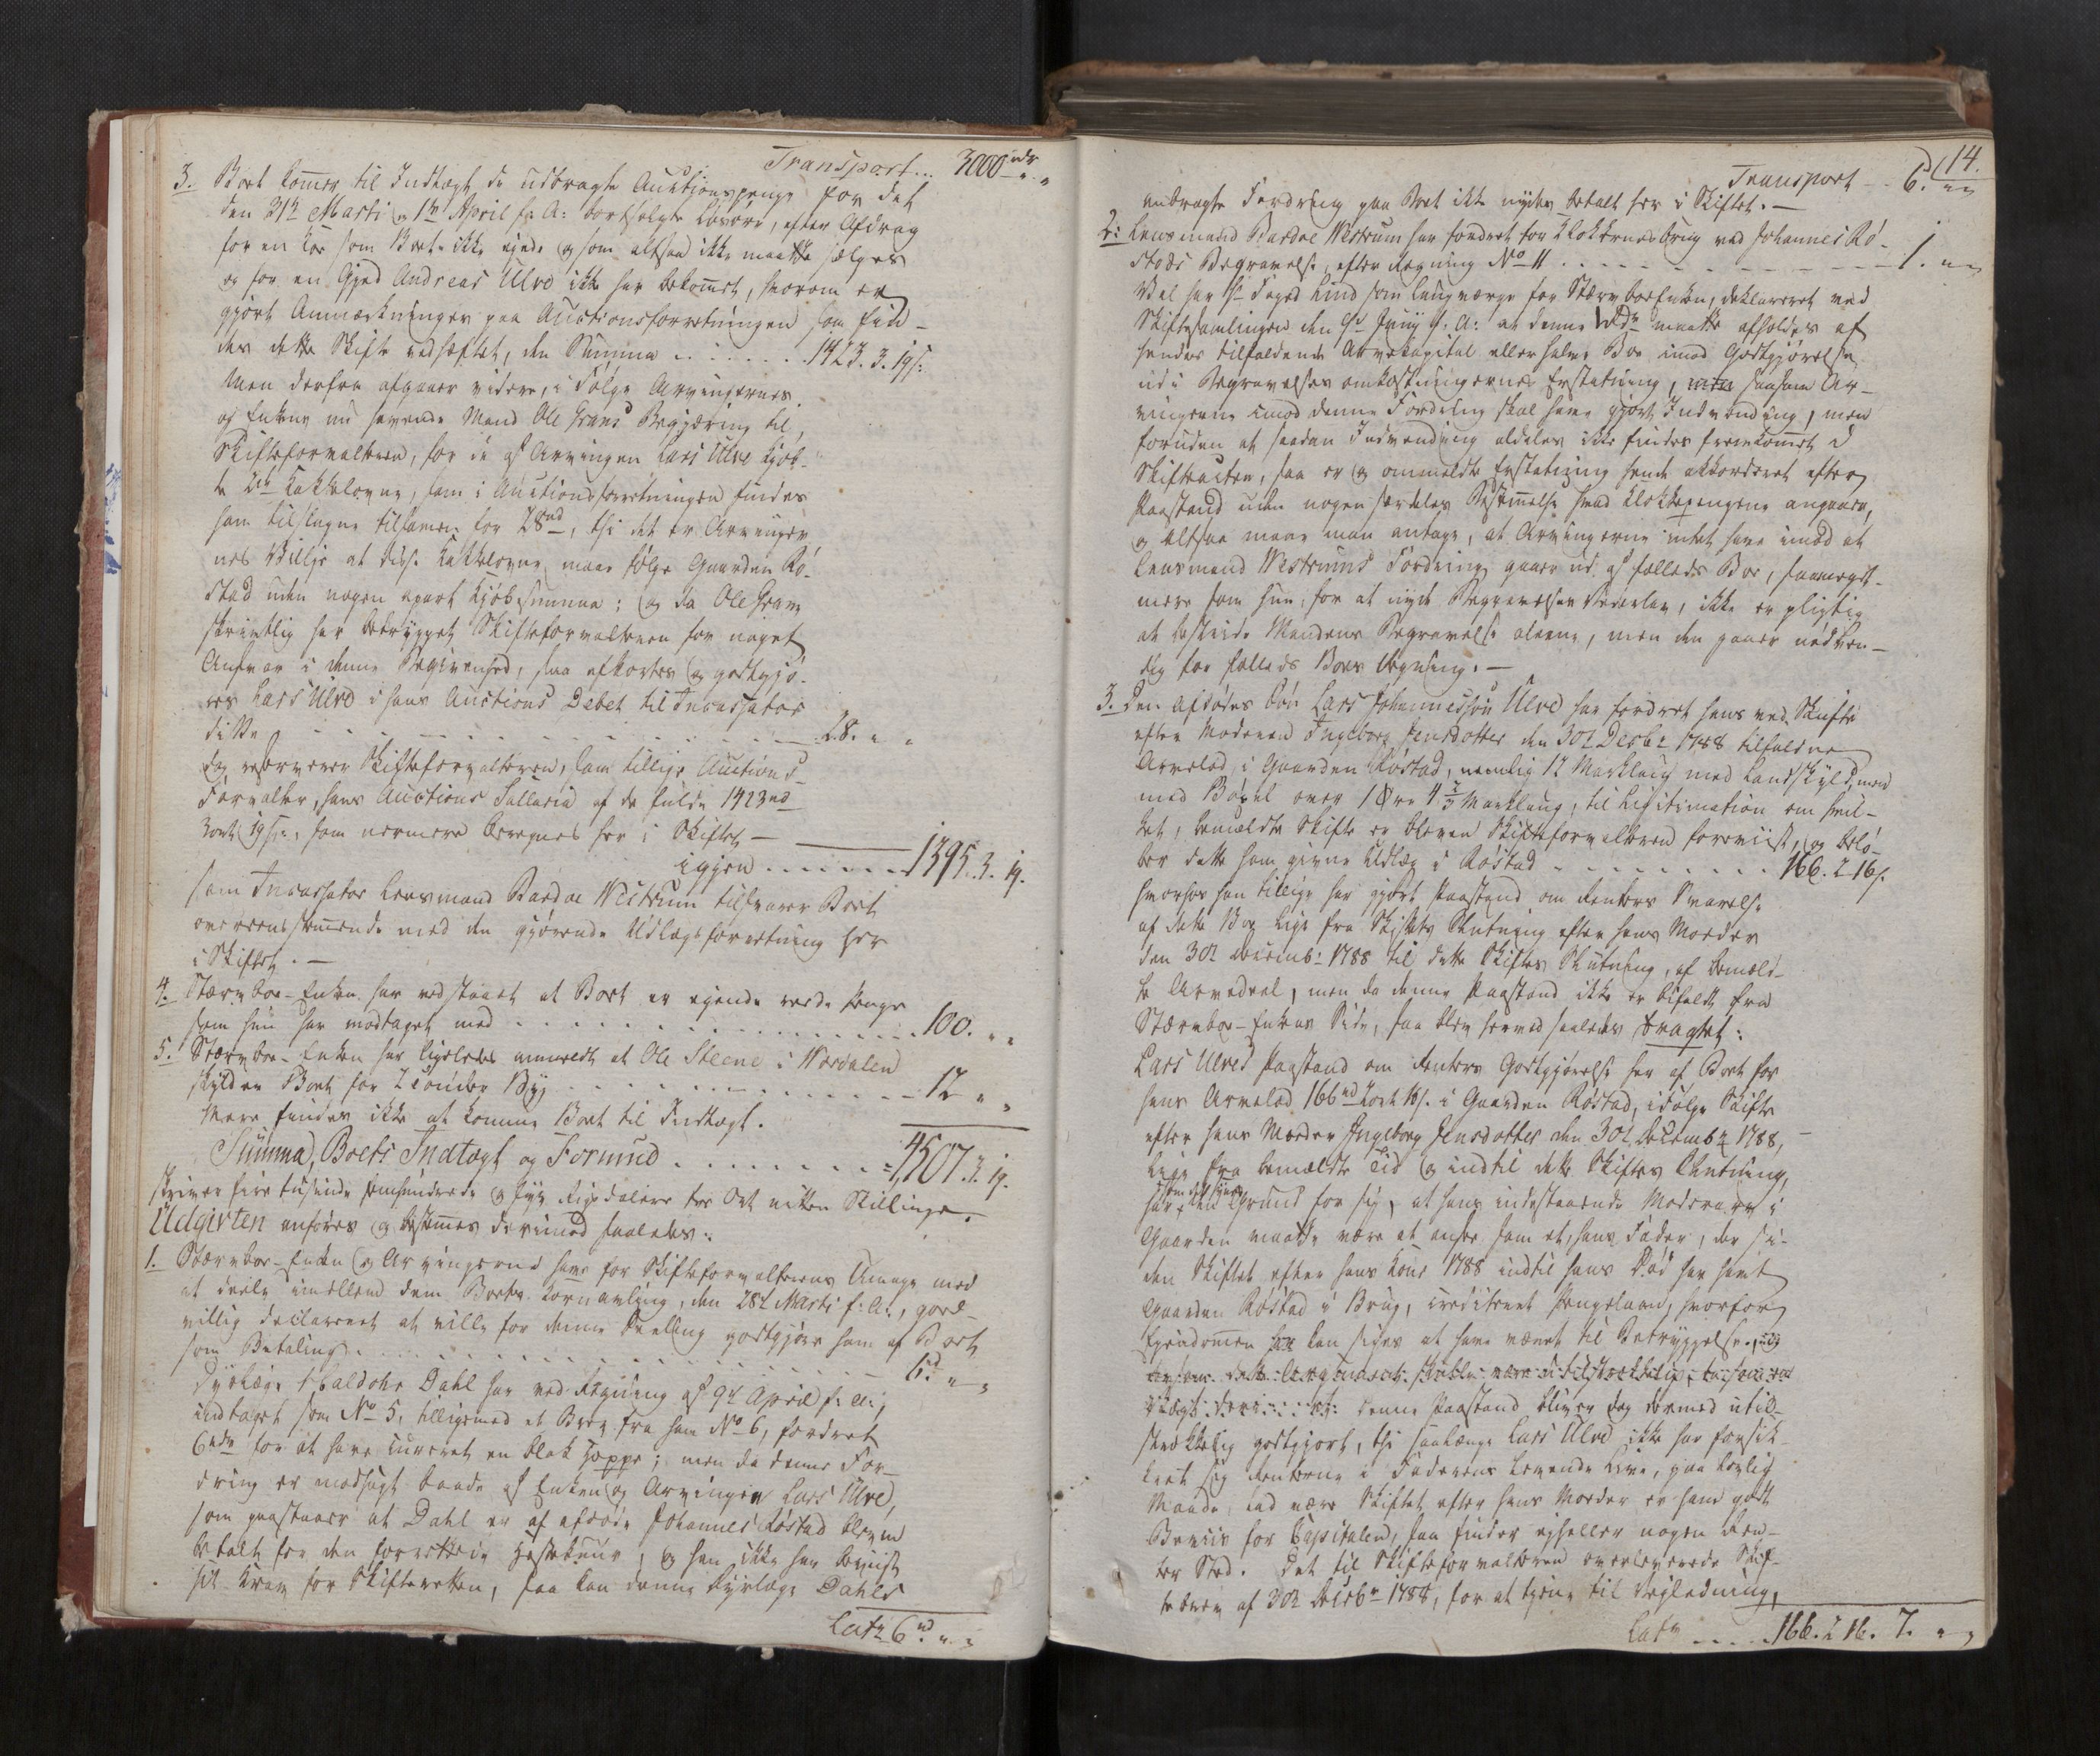 Transport... 3000 rdr „ „
3. Boet kom̄er til Indtægt de udbragte Auctionspenge for det
den 31te Marti og 1te April f: A: bortsolgte Løsøre, efter Afdrag
for en Koe som Boet ikke ejede og som altsaa ikke maatte sælges
og for en Gjed Andreas Ulve ikke har bekom̄et, hvorom er
gjort Anmærkninger paa Auctionsforretningen som fin-
des dette Skifte vedhæftet, den Summa . . . . . . 1423. 3. 19 s:
Men derfra afgaaer videre, i Følge Arvingernes
og Enkens nu havende Mand Ole Grans Begjæring til
Skifteforvalteren, for de af Arvingen Lars Ulve kjøb-
te 2de Kakkelovne, som i Auctionsforretningen findes
ham tilslagne tilsamen for 28 rd, thi det er Arvinger
nes Villje at disse Kakkelovne maae følge Gaarden Rø-
stad uden nogen apart Kjøbesumma; og da Ole Gran
skriftlig har betrygget Skifteforvalteren for noget
Ansvar i denne Begivenhed, saa afkortes og godtgjø-
res Lars Ulve i hans Auctions Debet til Incassator
disse . . . . . . 28. „ „
dog reserverer Skifteforvalteren, som tillige Auctions-
Forvalter, hans Auctions Sallaria af de fulde 1423 rd
3 ort 19 s:, som nærmere beregnes her i Skiftet —
igjen . . . . . . 1395. 3. 19.
som Incassator Lensmand Bardoe Westrum tilsvarer Boet
overeensstem̄ende med den gjørende Udlægsforretning her
i Skiftet. —
4. Stærvboe-Enken har vedstaaet at Boet er ejende rede Penge
som hun har modtaget med . . . . . . 100. „ „
5. Stærvboe-Enken har ligeledes anmeldt at Ole Steene i Værdalen
skylder Boet for 2 Tønder Byg . . . . . . 12 „ „
Mere findes ikke at komme Boet til Indtægt.
Summa, Boets Indtægt og Formue . . . . . . 4507. 3. 19.
skriver fire tusinde femhundrede og syv Rigsdalere tre Ort nitten Skillinge.
Udgivten anføres og bestem̄es derimod saaledes:
1. Stærvboe-Enken og Arvingerne have for Skifteforvalterens Umage med
at deele imellem dem Boets Kornavling, den 28de Marti f: A:, god-
villig declareret at ville for denne Deeling godtgjøre ham af Boet
som Betaling . . . . . . 6 d. „ „
Dyrlæge Dahl har ved Regning af 9de April f: A:,
indtaget som No 5, tilligemed et Brev fra ham No 6, fordret
6 rdr for at have cureret en blak Hoppe; men da denne For-
dring er modsagt baade af Enken og Arvingen Lars Ulve,
som paastaaer at Dahl er af afdøde Johannes Røstad bleven
betalt for den forrettede Hestekuur, og han ikke har beviist
sit Krav for Skifteretten, saa kan denne Dyrlæge Dahls
Lat: 6 rd „ „
14.
Transport . . 6 d. „ „
anbragte Fordring paa Boet ikke nyde betalt her i Skiftet. —
2: Lensmand Bardoe Westrum har fordret for Klokkernes brug ved Johannes Rø-
stads Begravelse, efter Regning No 11 . . . . . . 1. „ „
Vel har Hr Foged Lind som Laugværge for Stærvboe Enken, deklareret ved
Skiftesamlingen den Juny f: A: at denne 1 rdr maatte afholdes af
hendes tilfaldende Arvekapital eller halve Boe imod Godtgjørelse
udi Begravelses omkostningernes Erstatning, saasom Ar-
vingerne imod denne Fordring skal have gjort Indvending, men
foruden at saadan Indvending aldeles ikke findes fremkom̄et i
Skifteacten, saa er og ommeldte Erstatning hende akkorderet efter
Paastand uden nogen særdeles Bestem̄else hvad Klokkepengene angaaer,
og altsaa maae man antage, at Arvingerne intet have imod at
Lensmand Westrums Fordring gaaer ud af fælleds Boe, saameget-
mere som hun, for at nyde Begravelses Vederlag, ikke er pligtig
at bestride Mandens Begravelse alene, men den gaaer nødven-
dig for fælleds Boes Regning. —
3. Den afdødes Søn Lars Johannessøn Ulve har fordret hans ved Skifte
efter Moderen Ingeborg Jensdatter den 30te Decbr 1788 tilfaldne
Arvelod i Gaarden Røstad, nemlig 12 Marklaug med Landskyld, med
med Bøxel over 1 Øre 4 ⅔ Marklaug, til Legitimation om hvil-
ket, bemældte Skifte er bleven Skifteforvalteren foreviist, og belø-
ber dette ham givne Udlæg i Røstad . . . . . . 166. 2. 16 s.
hvorhos han tillige har gjort Paastand om Renters Svarelse
af dette Boe lige fra Skiftets Slutning efter hans Moder
den 30te Decemb: 1788 til dette Skiftes Slutning, af bemæld-
te Arvedeel, men da denne Paastand ikke er bifaldt fra
Stærvboe-Enkens Side, saa blev herved saaledes eragtet:
Lars Ulves Paastand om Renters Godtgjørelse her af Boet for
hans Arvelod 166 rd 2 ort 16 s. i Gaarden Røstad, ifølge Skifte
efter hans Moder Ingeborg Jensdatter den 30te Decembr 1788,
lige fra bemældte Tid og indtil dette Skiftes Slutning,
har den Grund for sig, at hans indestaaende Moderarv i
Gaarden maatte være at ansee som et, hans Fader, der si-
den Skiftet efter hans Kone 1788 indtil hans Død har havt
Gaarden Røstad i Brug, crediteret Pengelaan, hvorfor
Ejendom̄en kan siges at have været til Betryggelse,
denne Paastand bliver dog dermed util-
strækkelig godtgjort, thi saalænge Lars Ulve ikke har forsik-
kret sig Renterne i Faderens levende Live, paa lovlig
Maade, lad være Skiftet efter hans Moder er ham godt
Beviis for Capitalen, saa finder ejheller nogen Ren-
ter Sted. Det til Skifteforvalteren overleverede Skif-
tebrev af 30te Decbr 1788, for at tjene til Vejledning,
Lat: . . . . 166. 2. 16. 7. „ „